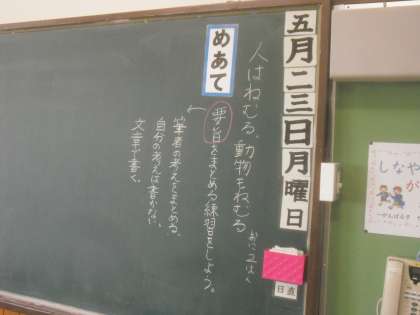 五月二三日月曜日
日直
人はねむる。動物もねむる
めあて
要旨をまとめる練習をしよう。
筆者の考えをまとめる。
自分の考えは書かない。
文章で書く。
しなや
が